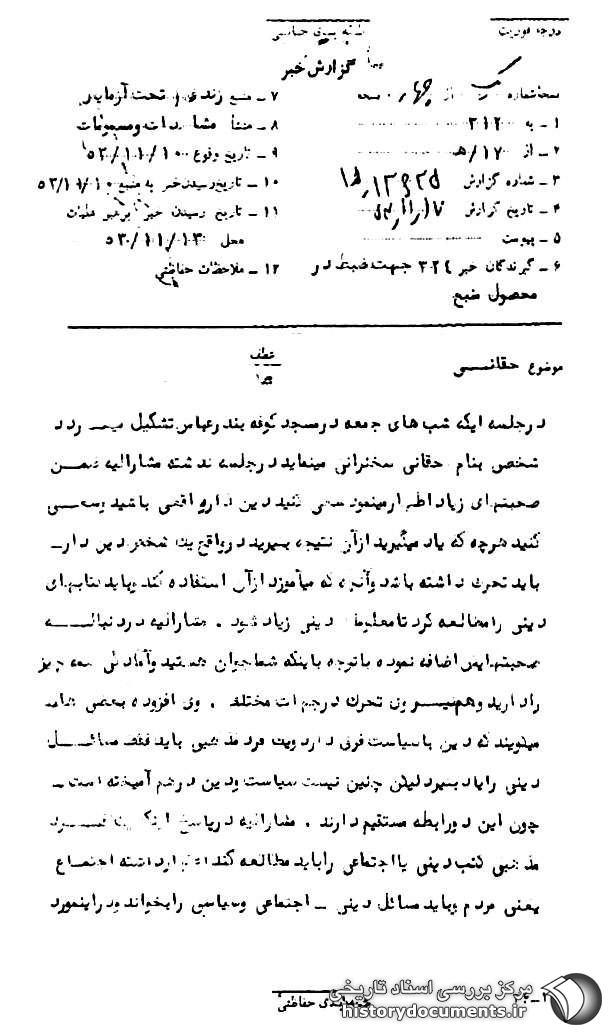 درجه فوریت
طبقه بندی حفاظتی
گزارش خبر
نسخه شماره از چهار نسخه
۱ـ به ۳۱۲
۲ـ از ۱۷/هـ
۳ـ شماره گزارش
۴ـ تاریخ گزارش
۵ـ پیوست
۶ـ گیرندگان خبر ۳۲۴ جهت ضبط در
محصول منبع
۷ـ منبع تحت آزمایش
۸ـ منشأ مشاهدات و مسموعات
۹ـ تاریخ وقوع
۱۰ـ تاریخ رسیدن خبر به منبع
۱۱ـ تاریخ رسیدن خبر به رهبر عملیات
محل
۱۲ـ ملاحظات حفاظتی
موضوع حقانی
عطف
در جلسه ایکه شب های جمعه در مسجد کوفه بندرعباس تشکیل میگردد
شخص بنام حقانی سخنرانی مینماید در جلسه گذشته مشارالیه ضمن
صحبتهای زیاد اظهار مینمود سعی کنید دین دار واقعی باشید وسعی
کنید هرچه که یاد میگیرید از آن نتیجه بگیرید در واقع یک شخص دین دار
باید تحرک داشته باشد و آنچه که میآموزد از آن استفاده کند و باید کتابهای
دینی را مطالعه کرد تا معلومات دینی زیاد شود . مشارالیه در دنباله
صحبتهایش اضافه نموده با توجه باینکه شما جوان هستید و آمادگی همه چیز
را دارید و همنیرون تحرک در جهات مختلف . وی افزوده بعضی ها
میگویند که دین با سیاست فرق دارد و یک فرد مذهبی باید فقط مسائل
دینی را یاد بگیرد لیکن چنین نیست سیاست و دین درهم آمیخته است ـ
چون این دو رابطه مستقیم دارند . مشارالیه در پاسخ اینکه یک فرد
مذهبی کتب دینی یا اجتماعی را باید مطالعه کند اجتماع
یعنی مردم و باید مسائل دینی ـ اجتماعی و سیاسی را بخواند
طبقه بندی حفاظتی
مرکز بررسی اسناد تاریخی
historydocuments.ir